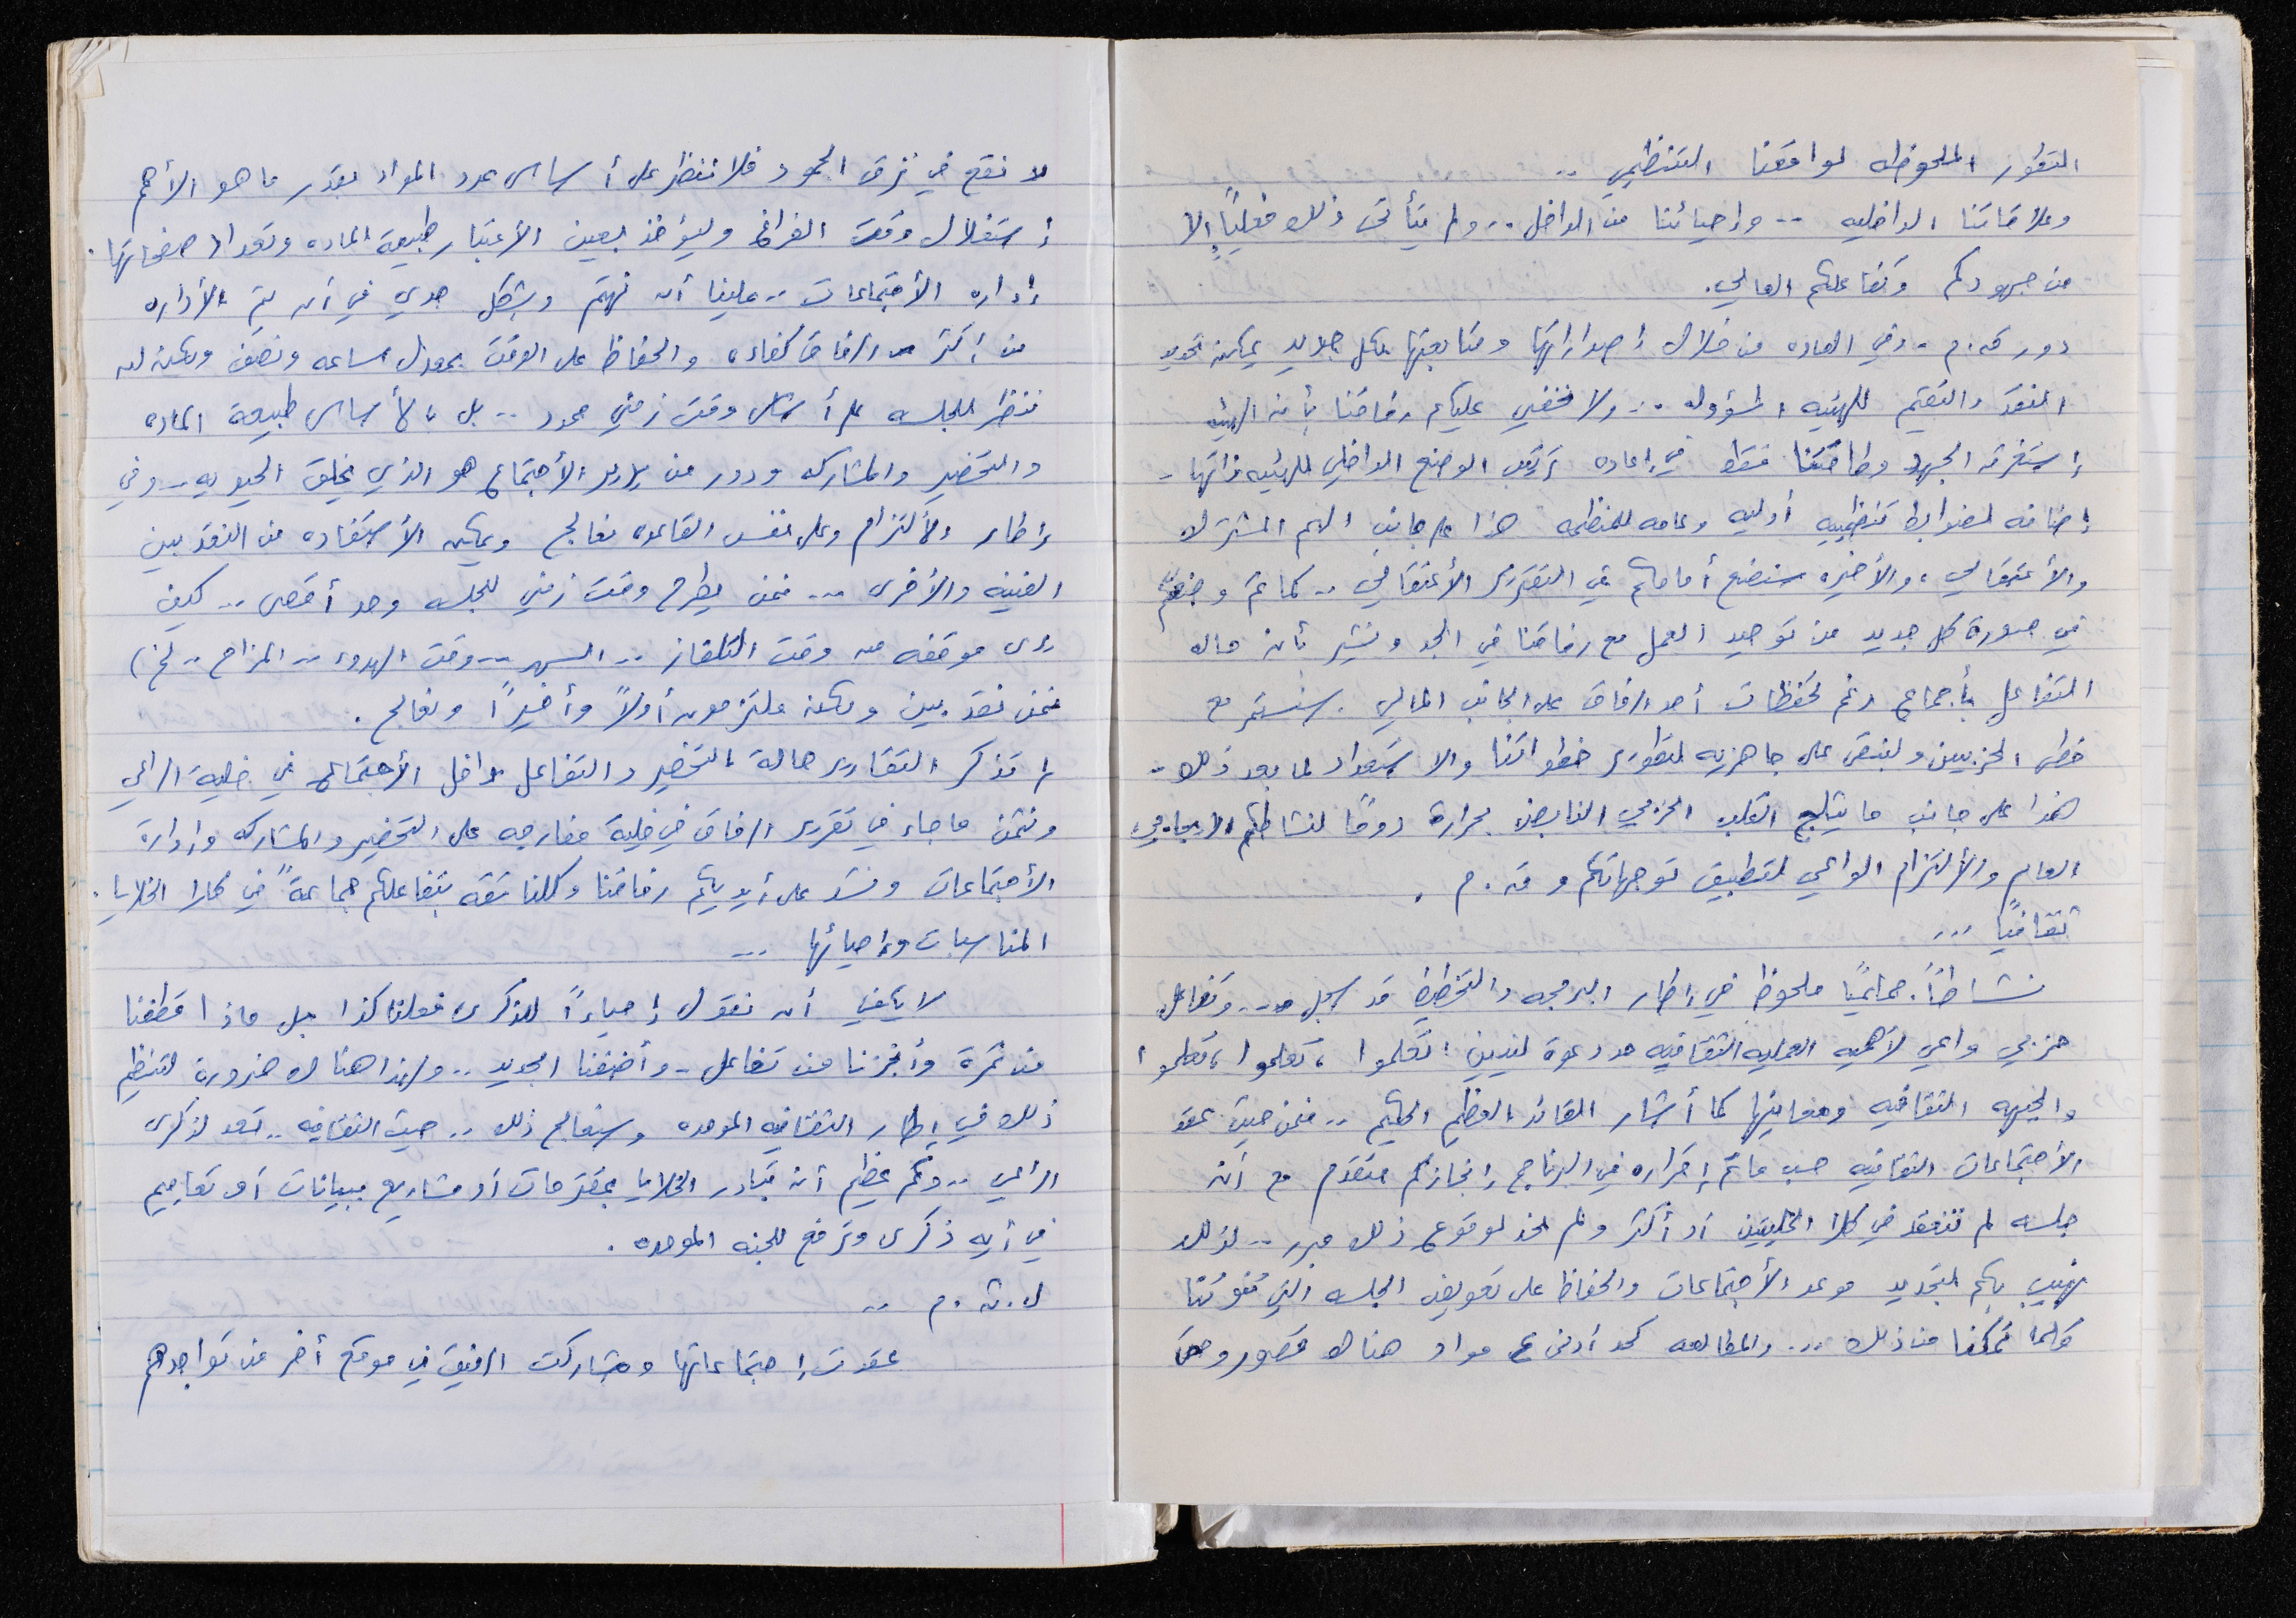 التطور الملحوظ لواقعنا التنظيمي ..
وعلاقاتنا الداخليه .. وإحيائنا من الداخل .. ولم يتأتى ذلك فعلياً إلا
من جهودكم وتفاعلكم العالي.
دور ق.م. وفي العاده من خلال إصداراتها ومتابعتها بكل جديد يمكن تحديد
النقد والتقيم للهيئه المسؤوله .. ولا نخفي عليكم رفاقنا بأن الهيئه
إستغرقت الجهد وطاقتنا فقط في إعاده ترتيب الوضع الداخلي للهيئه ذاتها -
إضافه لضوابط تنظيميه أوليه وعامه للمنظمه هذا على جانب الهم المشترك
والأعتقالي ، والأخيره سنضع أمامكم في التقرير الأعتقالي .. كما تم وضعكم
في صورة كل جديد من توحيد العمل مع رفاقنا في الجد ونشير بأن هناك
التفاعل بأجماع رغم تحفظات أحد الرفاق على الجانب المالي . سنستمر مع
خطى الحزبيين ولنبقى على جاهزيه لتطوير خطواتنا والاستعداد لما بعد ذلك -
هذا على جانب ما يثلج القلب الحزبي النابض بحرارة دوماً لنشاطكم الايجابي
العام والألتزام الواعي لتطبيق توجهاتكم و ق . م .
ثقافياً ...
نشاطاً جماعياً ملحوظ في إطار البرمجه والتخطيط قد سجل ... وتفاعل
حزبي واعي لأهميه العمليه الثقافيه مع دعوة لينين : تعلموا ، تعلموا ، تعلموا
والجبهه الثقافيه ومعانيها كما أشار القائد العظيم الحكيم .. فمن حيث عقد
الأجتماعات الثقافيه حسب ما تم إقراره في البرنامج إنجازكم متقدم مع أن
جلسه لم تنعقد في كلا الخليتين أو أكثر ولم نجد لوقوع ذلك مبرر .. لذلك
نهيب بكم لتحديد موعد الأجتماعات والحفاظ على تعويض الجلسه التي تفوتنا
كلما تمكنا من ذلك ... والمطالعه كحد أدنى ٤ مواد هناك قصور وحتى
لا نقع في نزق الجمود فلا ننظر على أساس عدد المواد بقدر ما هو الأهم
إستغلال وقت الفراغ وليؤخذ بعين الأعتبار طبيعة الماده وتعداد صفحاتها .
إداره الأجتماعات .. علينا أن نهتم وبشكل جدي في أن تتم الأداره
من أكثر الرفاق كفاءه والحفاظ على الوقت بمعدل ساعه ونصف ولكن لن
ننظر للجلسه على أساس وقت زمني محدد .. بل بالأساس طبيعة الماده
والتحضير والمشاركه ودور من يدير الأجتماع هو الذي يخلق الحيويه .. وفي
إطار الألتزام وعلى نفس القاعده نعالج ويمكن الأستفاده من النقد بين
الفينه والأخرى ... فمن يطرح وقت زمني للجلسه وحد أقصى .. كيف
يرى موقفه من وقت التلفاز .. السهر .. وقت الهدوء .. المزاح .. الخ)
فنحن نقد بين ولكن ملتزمون أولاً وأخيراً ونعالج .
لم تذكر التقارير حالة التحضير والتفاعل داخل الأجتماع في خلية الراعي
ونثمن ما جاء في تقرير الرفاق في خلية مفارجه على التحضير والمشاركه وإدارة
الأجتماعات ونشد على أيديكم رفاقنا وكلنا ثقه بتفاعلكم جماعةً في كلا الخلايا .
المناسبات وإحيائها ...
لا يكفي أن نقول إحياءاً للذكرى فعلنا كذا بل ماذا قطفنا
من ثمرة وأنجزنا من تفاعل .. وأضفنا الجديد .. ولهذا هناك ضرورة لتنظيم
ذلك في إطار الثقافيه الموحده وسنعالج ذلك .. حيث الثقافيه .. تعد لذكرى
الراعي .. وكم عظيم أن تبادر الخلايا بمقترحات أو مشاريع ببيانات أو تعاميم
في أيه ذكرى وترفع للجنه الموحده .
ل . ث . م ..
عقدت إجتماعاتها وشاركت الرفيق في موقع أخر من تواجدهم